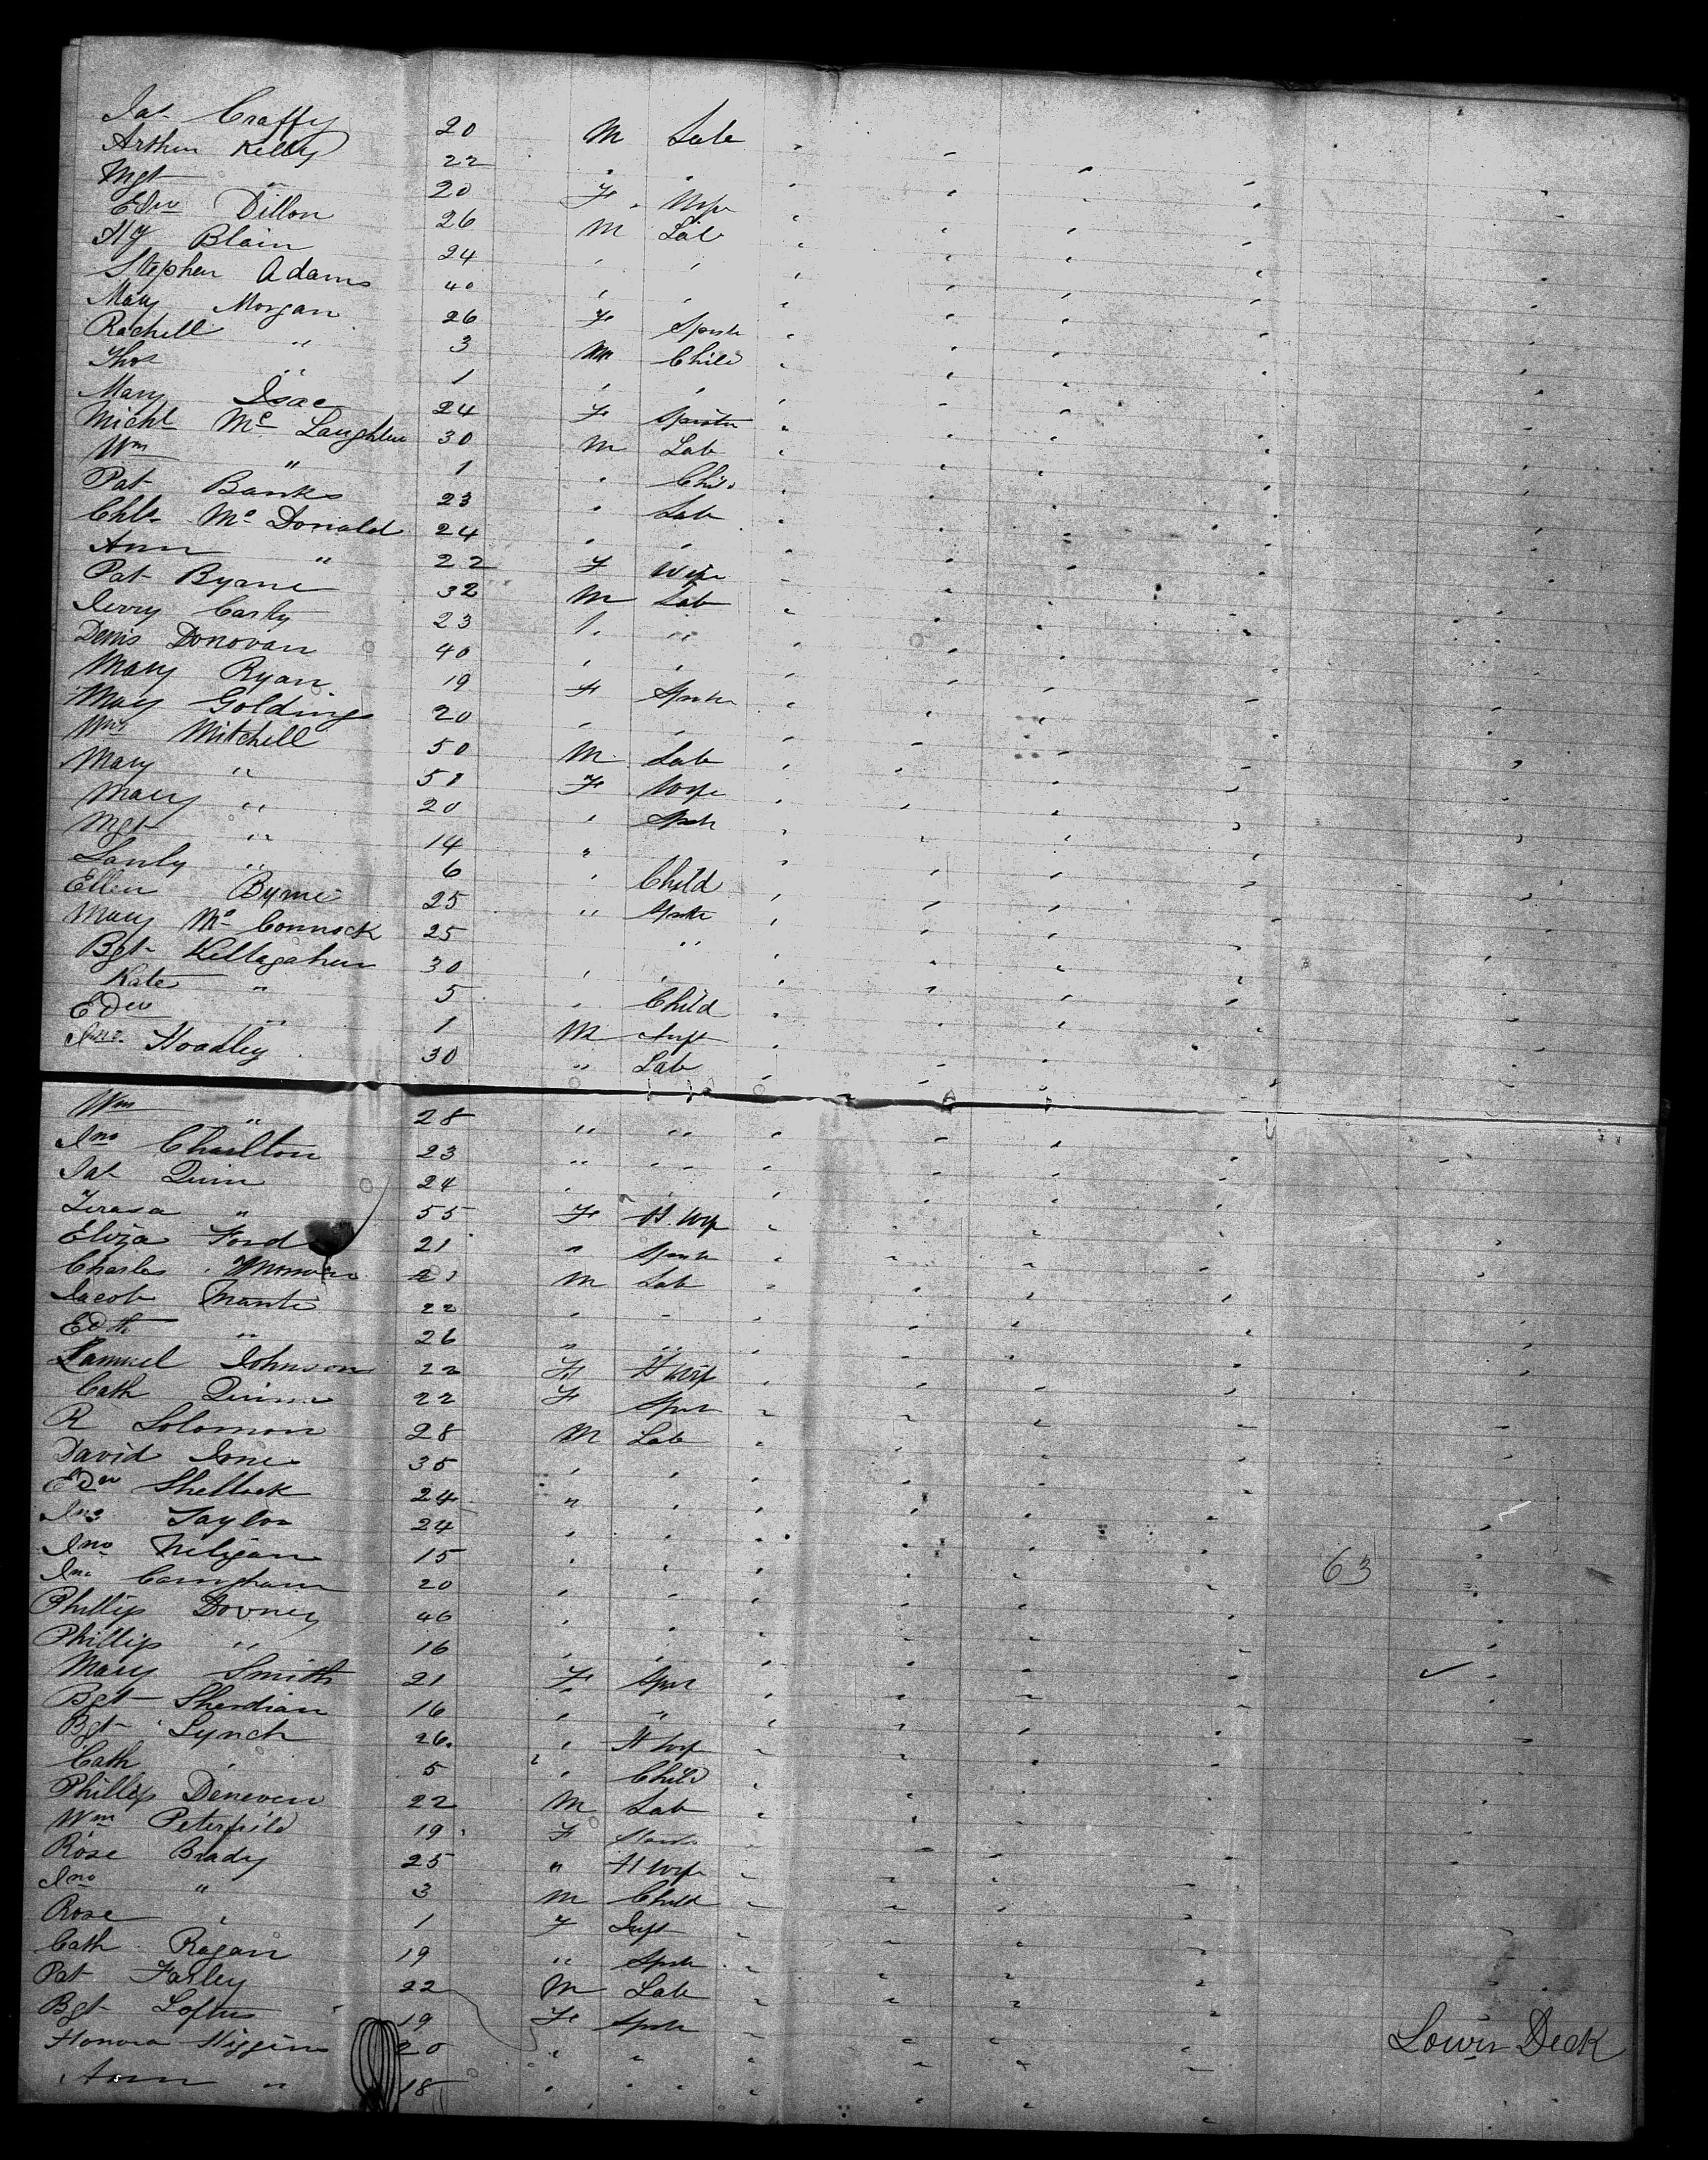 Jas Craffy 20 M Lab
Arthur Kelly 22 " "
Mgt " 20 F Wife
Edw Dillon 26 M Lab
Hy Blain 24 " "
Stephen Adams 40 " "
Mary Morgan 26 F Spstr
Rachell " 3 M Child
Thos " 1 " "
Mary Isac 24 F Spinstr
Michl Mc Laughlin 30 M Lab
Wm " 1 " Child
Pat Banks 23 " Lab
Chls Mc Donald 24 " "
Ann " 22 F Wife
Pat Byrne 32 M Lab
Jerry Carty 23 " "
Denis Donovan 40 " "
Mary Ryan 19 F Spstr
Mary Golding 20 " "
Wm Mitchell 50 M Lab
Mary " 51 F Wife
Mary " 20 " Spstr
Mgt " 14 "
" 6 " Child
Ellen Byrne 25 " Spstr
Mary Mc Connock 25 "
Bgt Kellagahen 30 " "
Kate " 5 " Child
Edw " 1 M Inft
Jno Hoadley 30 " Lab
Wm " 28 " "
Jno Charlton 23 " "
Jas Quin 24 "
Terasa " 55 F H. Wife
Eliza Ford 21 " Spstr
Charles 21 M Lab
Jacob Manti 22 " "
Edth " 26 " "
Samuel Johnson 22 F H Wife
Cath Quinn 22 F Spstr
R Solomon 28 M Lab
David Jones 35 " "
Edw Shellock 24 " "
Jno Taylor 24 " "
Jno Neligan 15 " "
63
Jno Carngham 20 "
Phillip Dovney 46 " "
Phillip " 16 " "
Mary Smith 21 F Spstr
Bgt Sherdian 16 " "
Bgt Lynch 26 " H Wife
Cath " 5 " Child
Phillip Deneven 22 M Lab
Wm Peterfield 19 F
Rose Brady 25 " H Wife
Jno " 3 M Child
Rose " 1 F Inft
Cath Ragan 19 " Spstr
Pat Farley 22 M Lab
Bgt Loftus 19 F Spstr
Honora Higgins 20 " "
Lower Deck
Ann " 18 " "